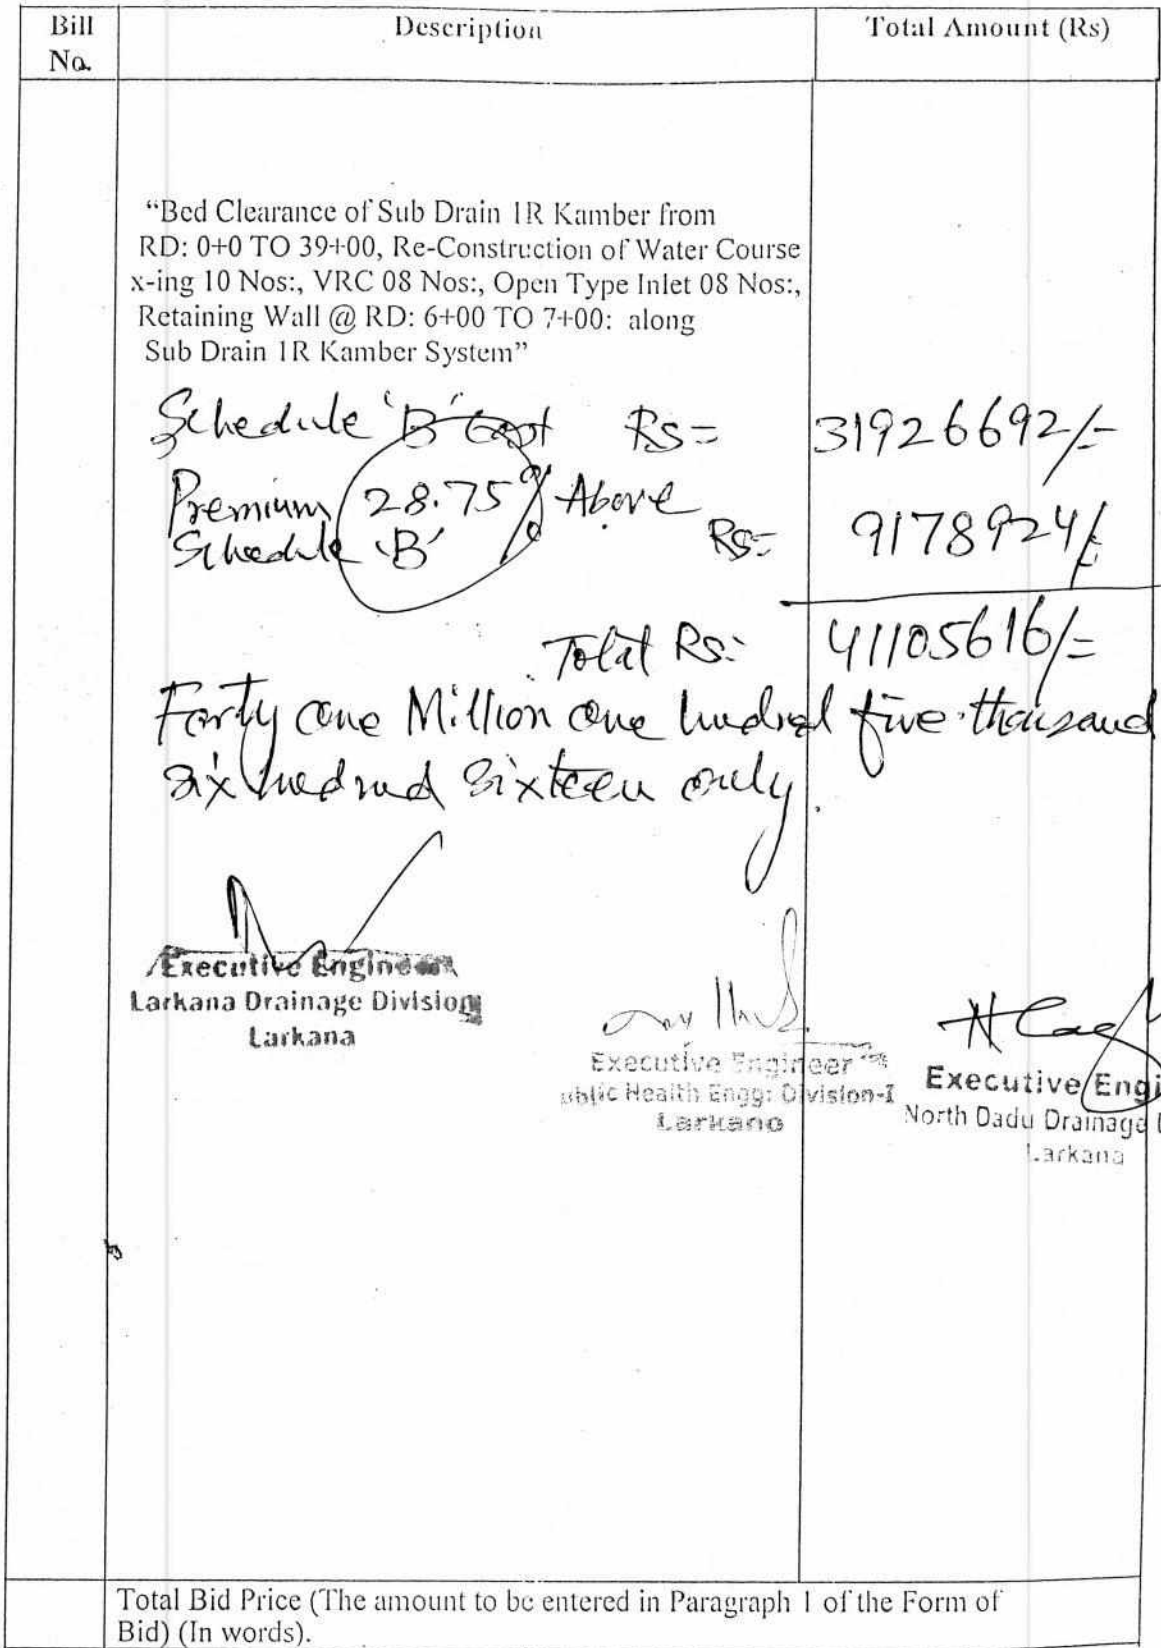 Bill No.
Description
Total Amount (Rs)
“Bed Clearance of Sub Drain 1R Kamber from
RD: 0+0 TO 39+00, Re-Construction of Water Course
x-ing 10 Nos:, VRC 08 Nos:, Open Type Inlet 08 Nos:,
Retaining Wall @ RD: 6+00 TO 7+00: along
Sub Drain 1R Kamber System”
Schedule 'B' Cost Rs= 31926692/-
Premium 28.75% Above
Schedule 'B' Rs= 9178924/-
Total Rs: 41105616/=
Forty one Million one hudred five thousand
six hudred sixteen only.
Executive Engineer
Larkana Drainage Division
Larkana
Executive Engineer
ublic Health Engg: Division-I
Larkano
Executive Engi
North Dadu Drainage
Larkana
Total Bid Price (The amount to be entered in Paragraph 1 of the Form of
Bid) (In words).